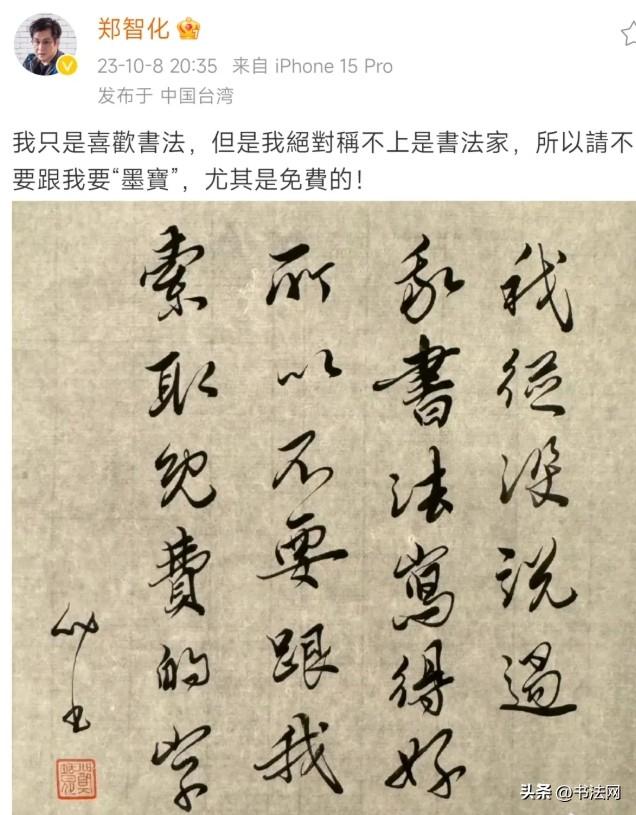 郑智化
23-10-8 20:35 来自 iPhone 15 Pro
发布于 中国台湾
我只是喜歡書法，但是我絕對稱不上是書法家，所以請不
要跟我要“墨寶”，尤其是免費的！
我從沒說過
我書法寫得好
所以不要跟我
索取免費的字
头条 @书法网